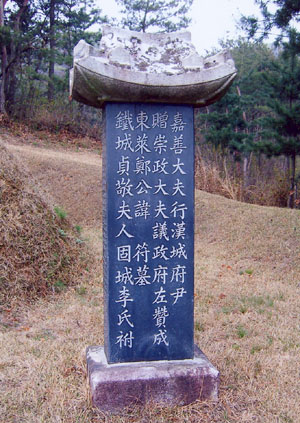 嘉善大夫行漢城府尹
贈崇政大夫議政府左贊成
東萊鄭公諱 符墓
鐵城貞敬夫人固城李氏祔